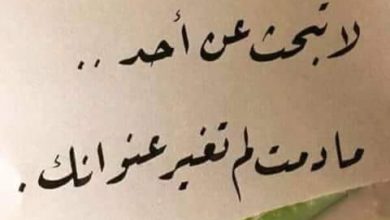 لا تبحث عن أحد ..
ما دمت لم تغير عنوانك .